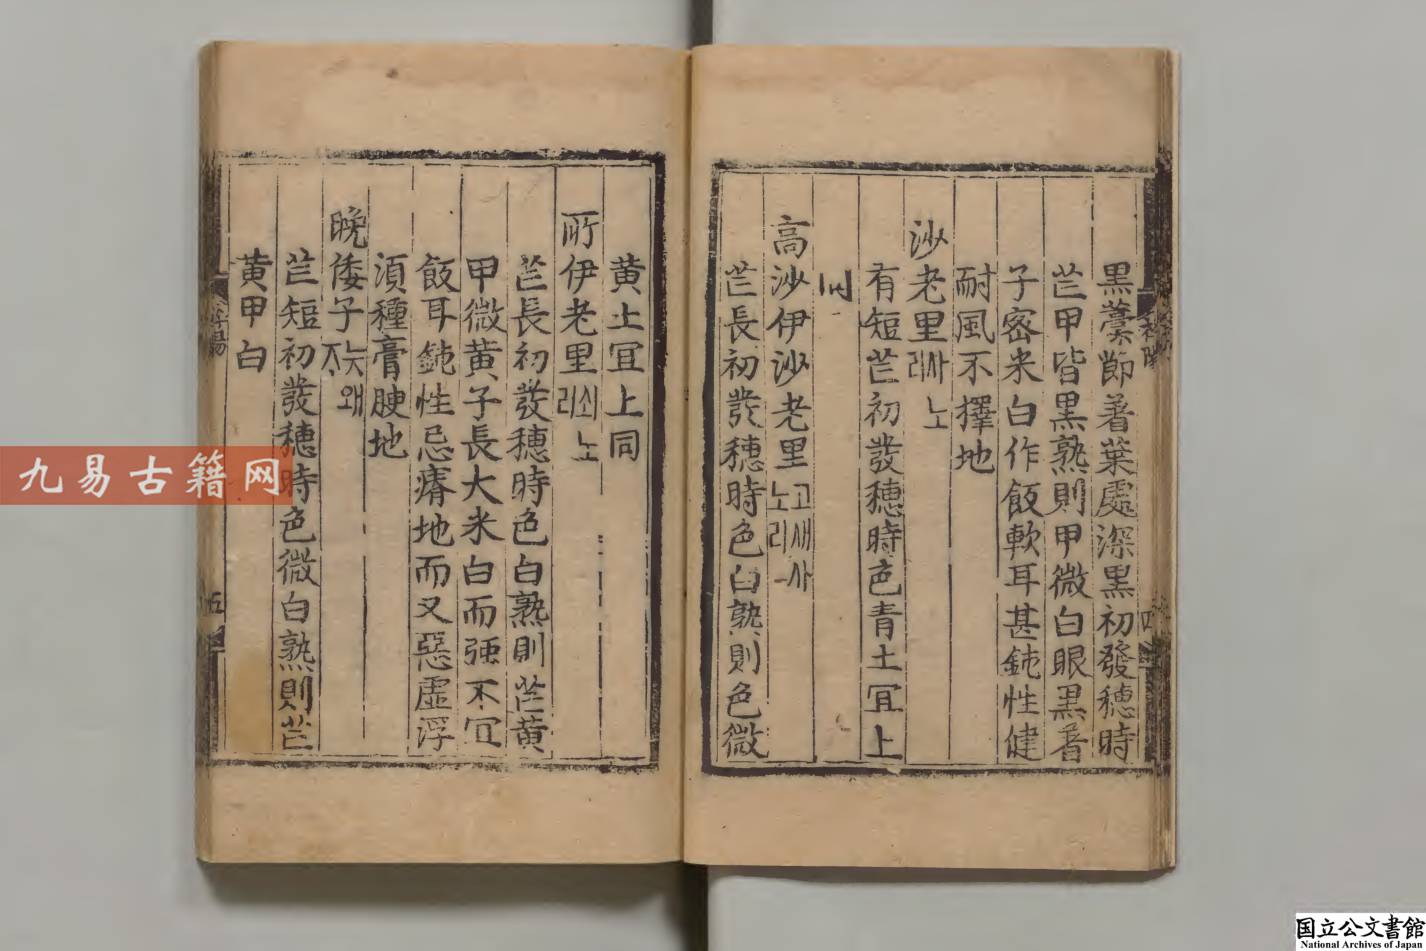 黒藁節着葉處深黒初發穗時
芒甲皆黒熟則甲微白眼黒着
子密米白作飯軟耳甚鈍性健
耐風不擇地
沙老里 사노리
有短芒初發穗時色青土冝上
同
高沙伊沙老里 고새사노리
芒長初發穗時色白熟則色微
黄土冝上同
所伊老里 쇠노리
芒長初發穗時色白熟則芒黄
甲微黄子長大米白而强不冝
飯耳鈍性忌瘠地而又惡虛浮
湏種膏腴地
晩倭子 왜
芒短初發穗時色微白熟則芒
黄甲白
五
四
九易古籍网
国立公文書館
National Archives of Japan